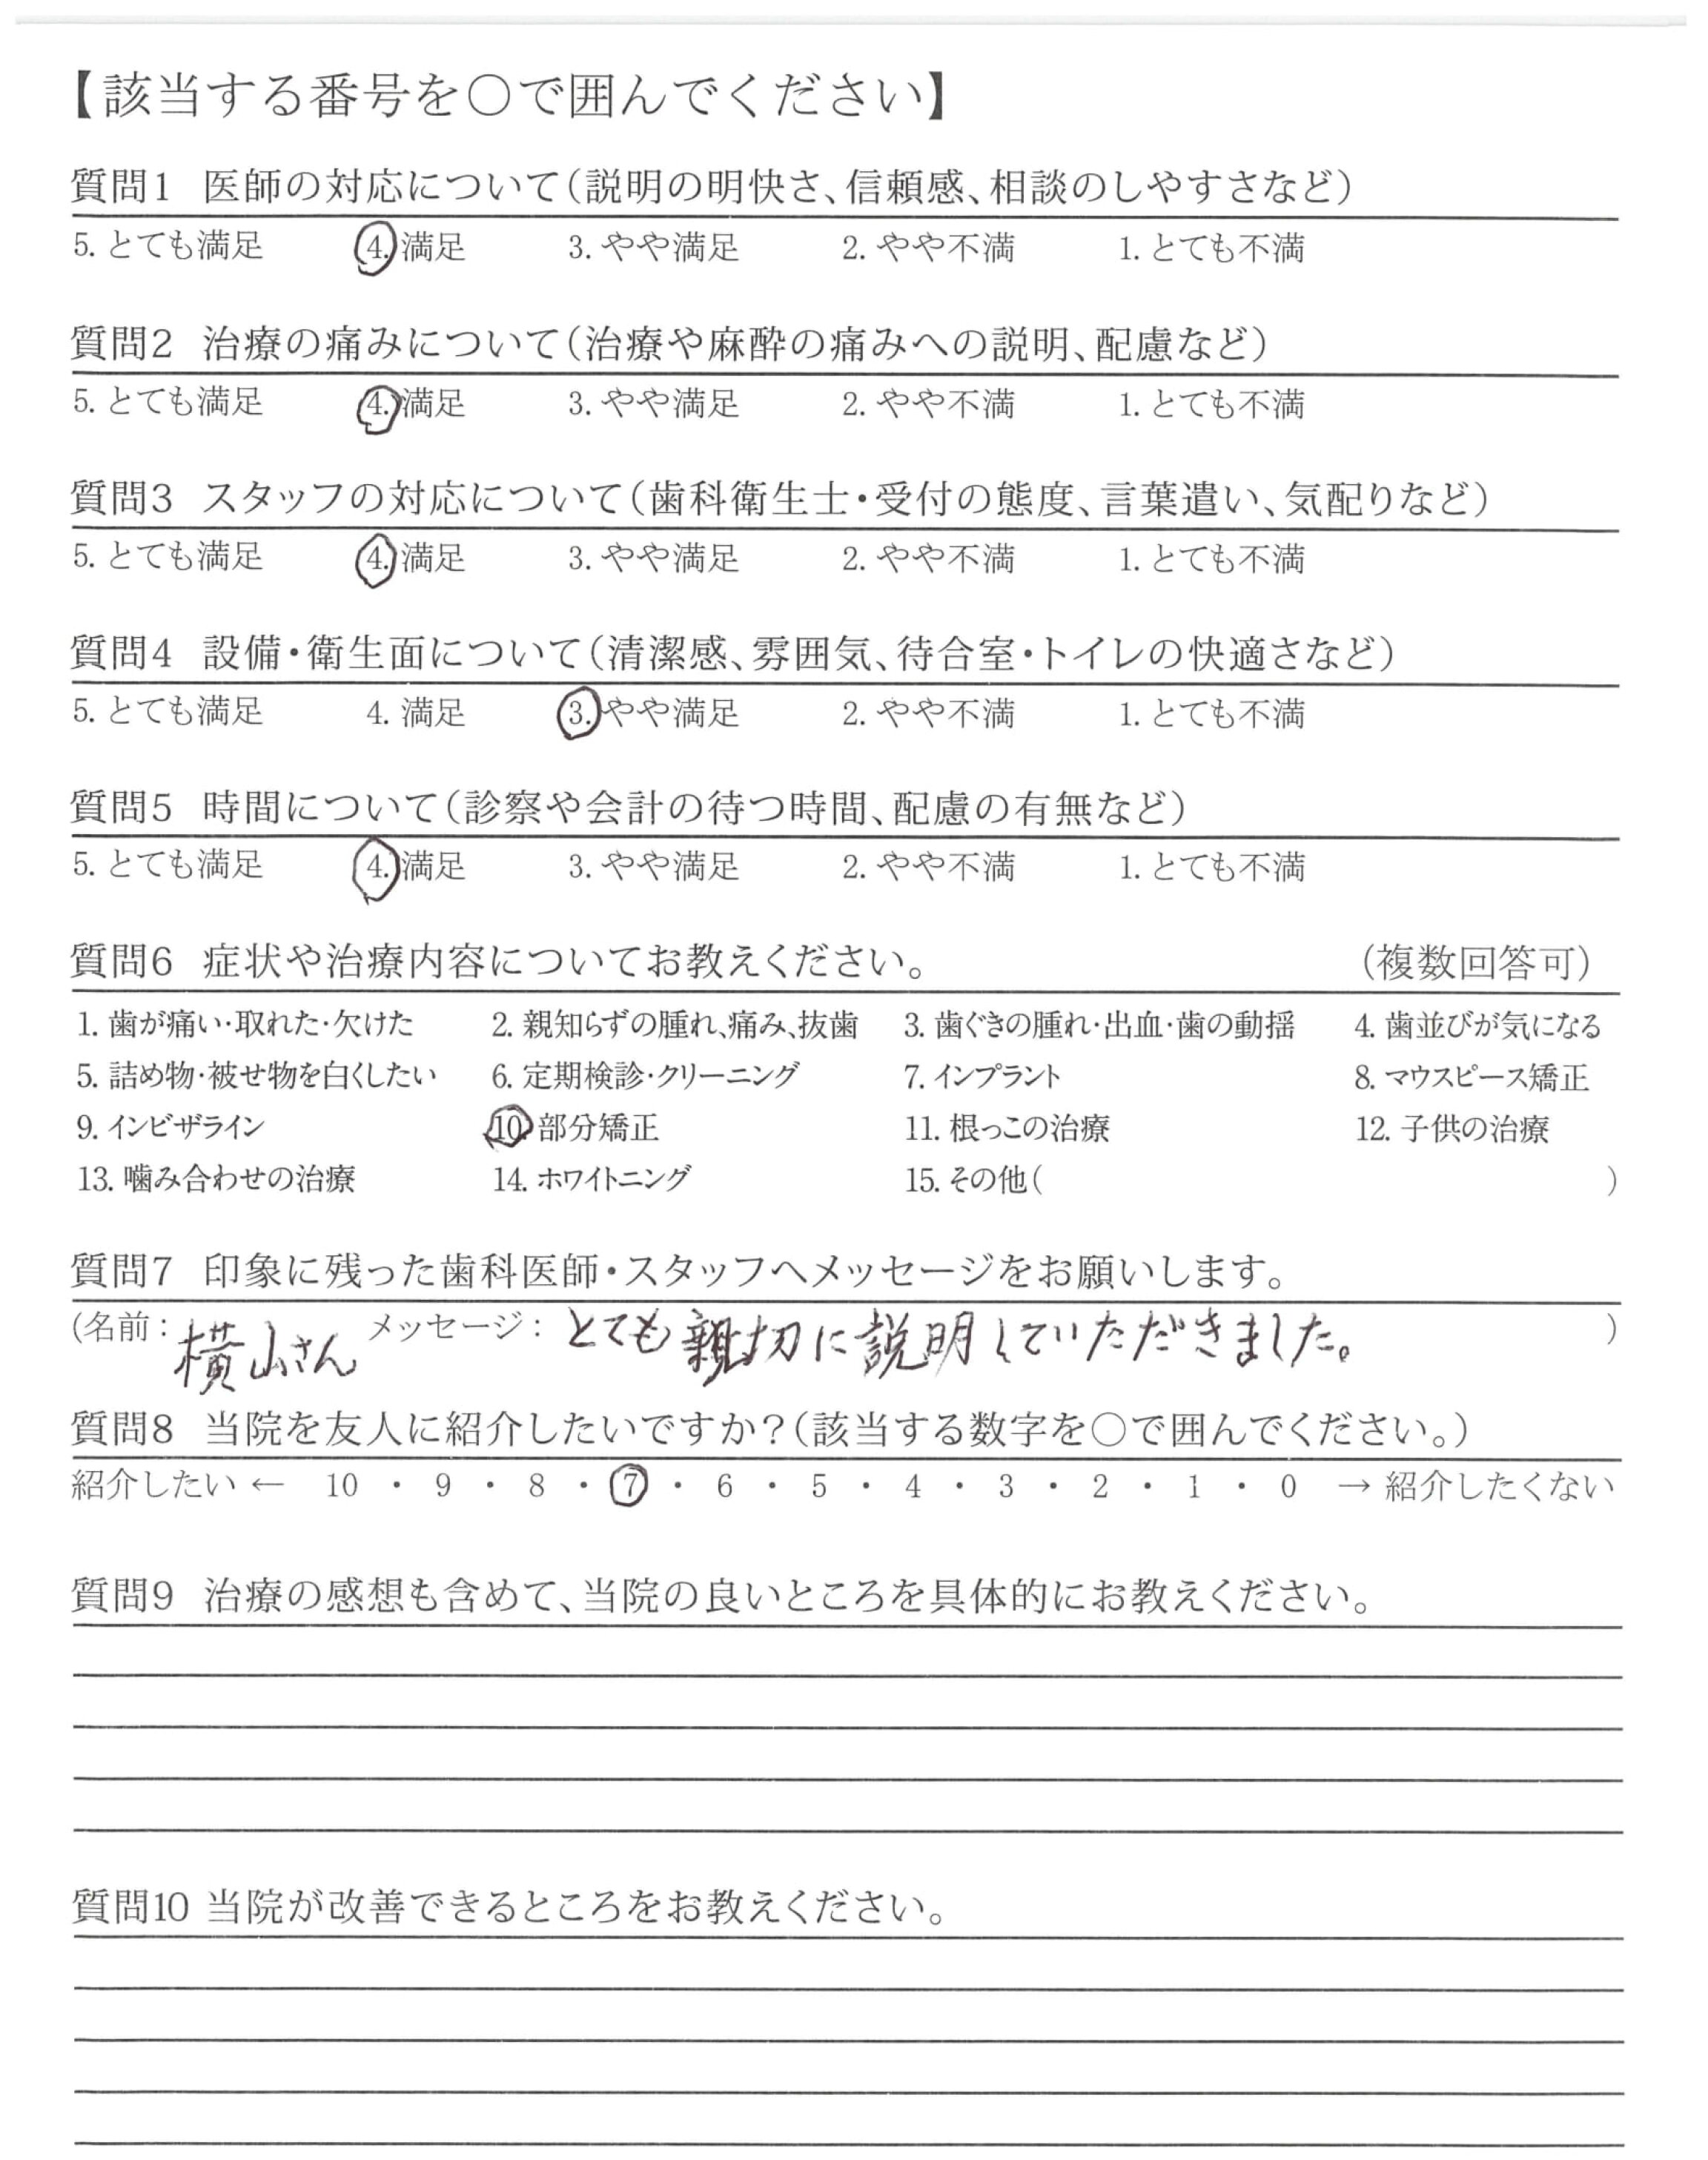 【該当する番号を○で囲んでください】
質問1 医師の対応について(説明の明快さ、信頼感、相談のしやすさなど)
5. とても満足 4. 満足 3. やや満足 2. やや不満 1. とても不満
質問2 治療の痛みについて(治療や麻酔の痛みへの説明、配慮など)
5. とても満足 4. 満足 3. やや満足 2. やや不満 1. とても不満
質問3 スタッフの対応について(歯科衛生士・受付の態度、言葉遣い、気配りなど)
5. とても満足 4. 満足 3. やや満足 2. やや不満 1. とても不満
質問4 設備・衛生面について(清潔感、雰囲気、待合室・トイレの快適さなど)
5. とても満足 4. 満足 3. やや満足 2. やや不満 1. とても不満
質問5 時間について(診察や会計の待つ時間、配慮の有無など)
5. とても満足 4. 満足 3. やや満足 2. やや不満 1. とても不満
質問6 症状や治療内容についてお教えください。 (複数回答可)
1. 歯が痛い・取れた・欠けた 2. 親知らずの腫れ、痛み、抜歯 3. 歯ぐきの腫れ・出血・歯の動揺 4. 歯並びが気になる
5. 詰め物・被せ物を白くしたい 6. 定期検診・クリーニング 7. インプラント 8. マウスピース矯正
9. インビザライン 10. 部分矯正 11. 根っこの治療 12. 子供の治療
13. 噛み合わせの治療 14. ホワイトニング 15. その他( )
質問7 印象に残った歯科医師・スタッフへメッセージをお願いします。
(名前: 横山さん メッセージ: とても親切に説明していただきました。 )
質問8 当院を友人に紹介したいですか?(該当する数字を○で囲んでください。)
紹介したい ← 10 ・ 9 ・ 8 ・ 7 ・ 6 ・ 5 ・ 4 ・ 3 ・ 2 ・ 1 ・ 0 → 紹介したくない
質問9 治療の感想も含めて、当院の良いところを具体的にお教えください。
質問10 当院が改善できるところをお教えください。